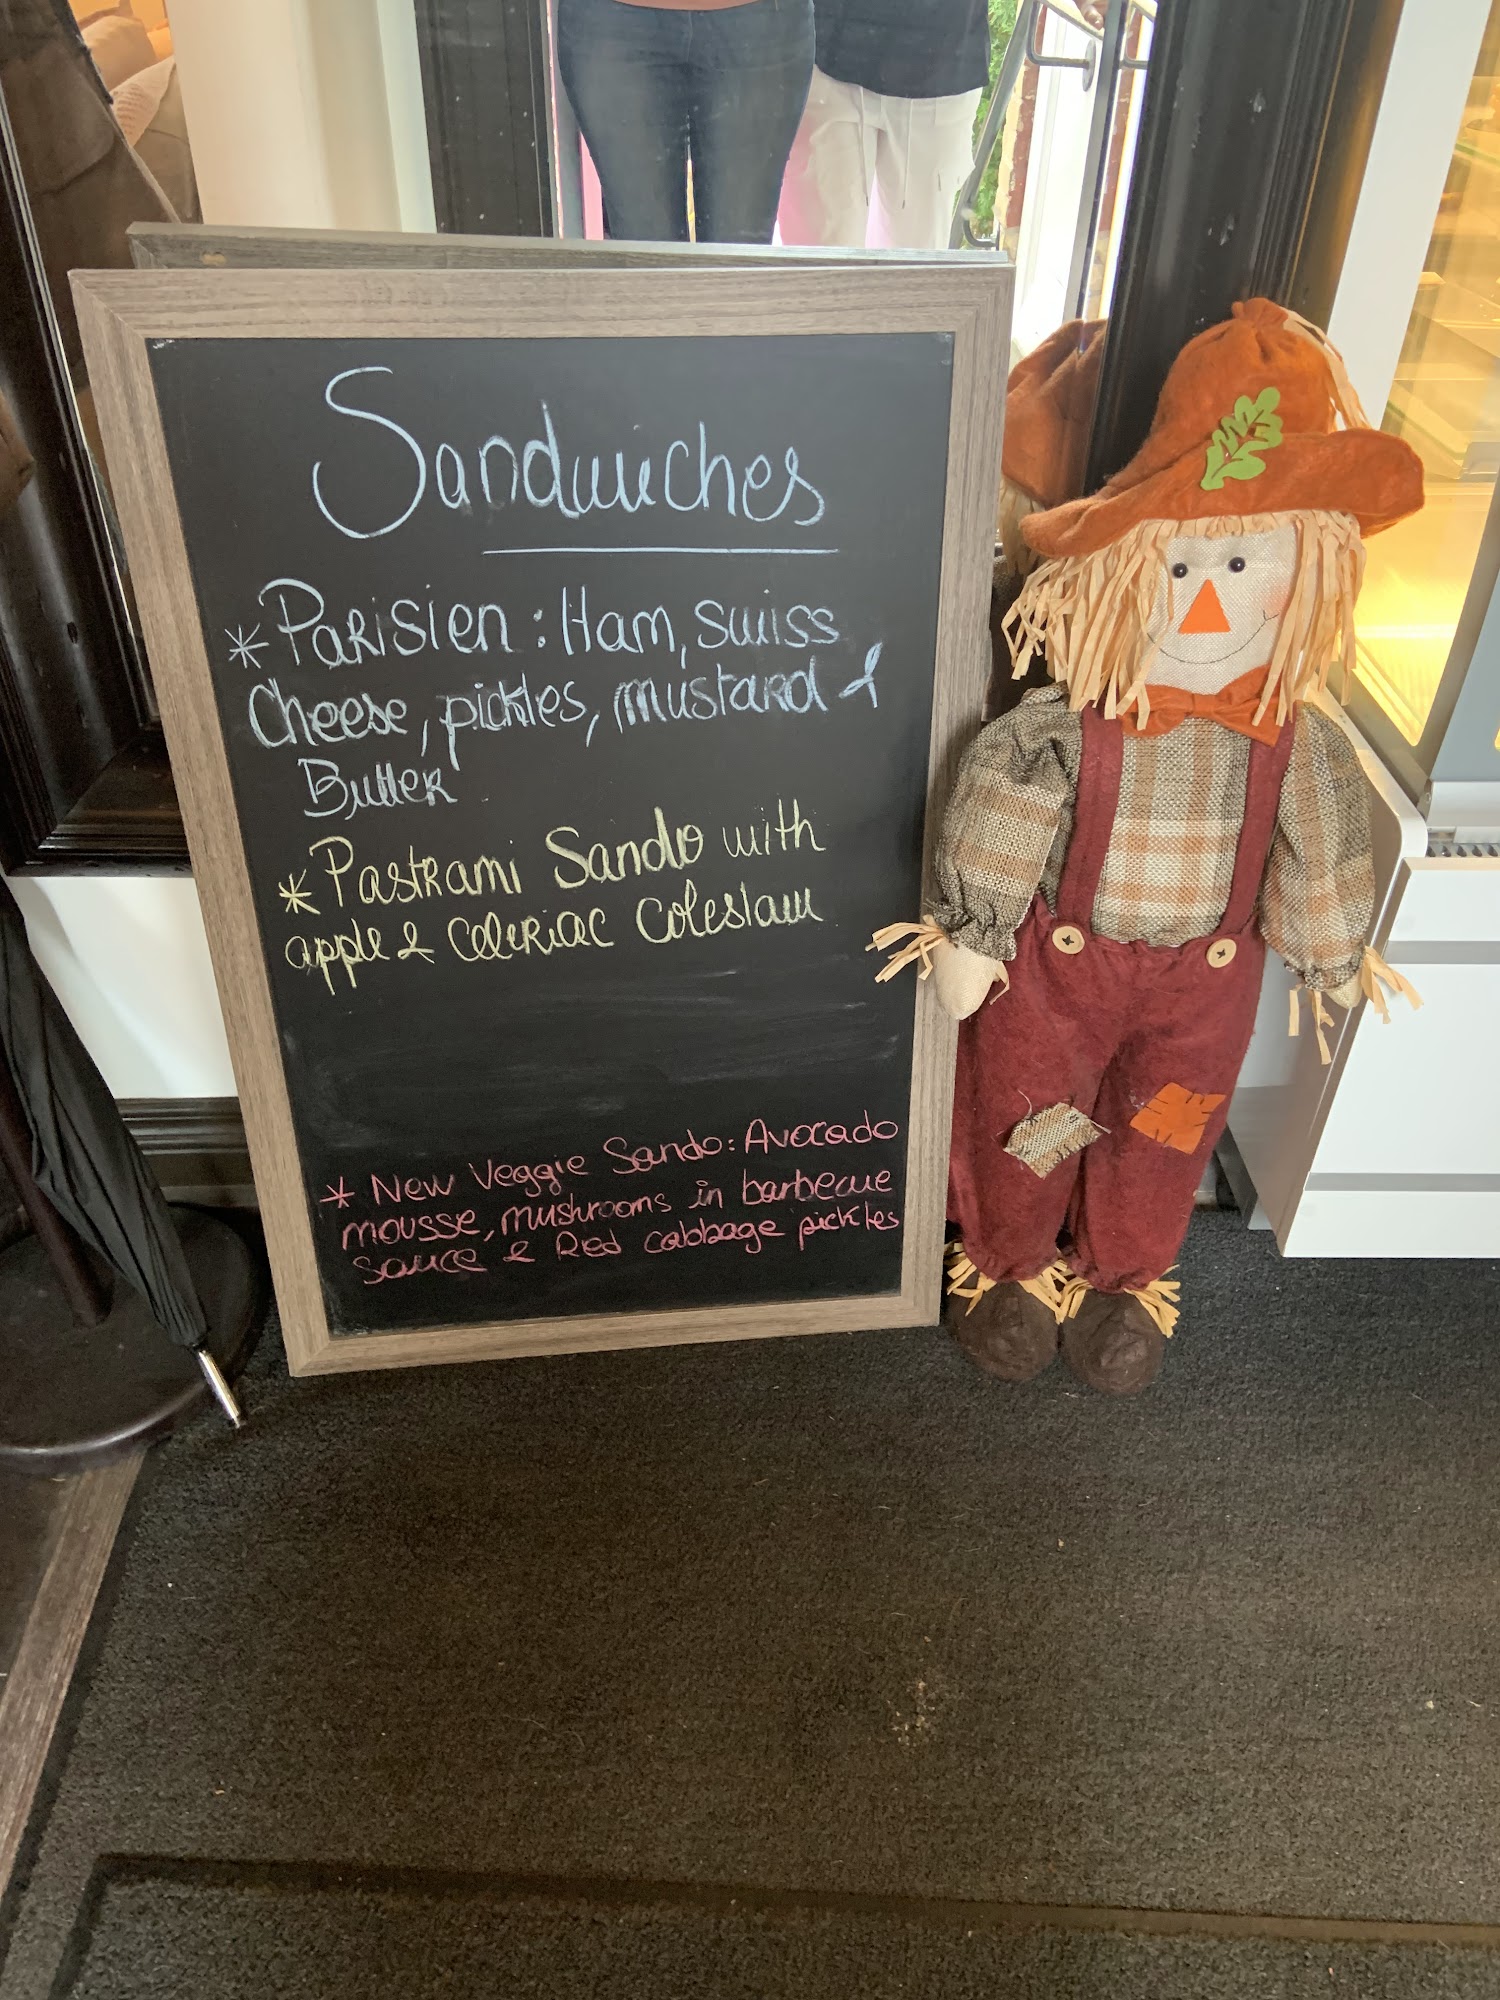 Sandwiches
* Parisien : Ham, swiss
Cheese, pickles, mustard &
Butter
* Pastrami Sando with
apple & Celeriac Coleslaw
* New Veggie Sando: Avocado
mousse, mushrooms in barbecue
sauce & Red cabbage pickles